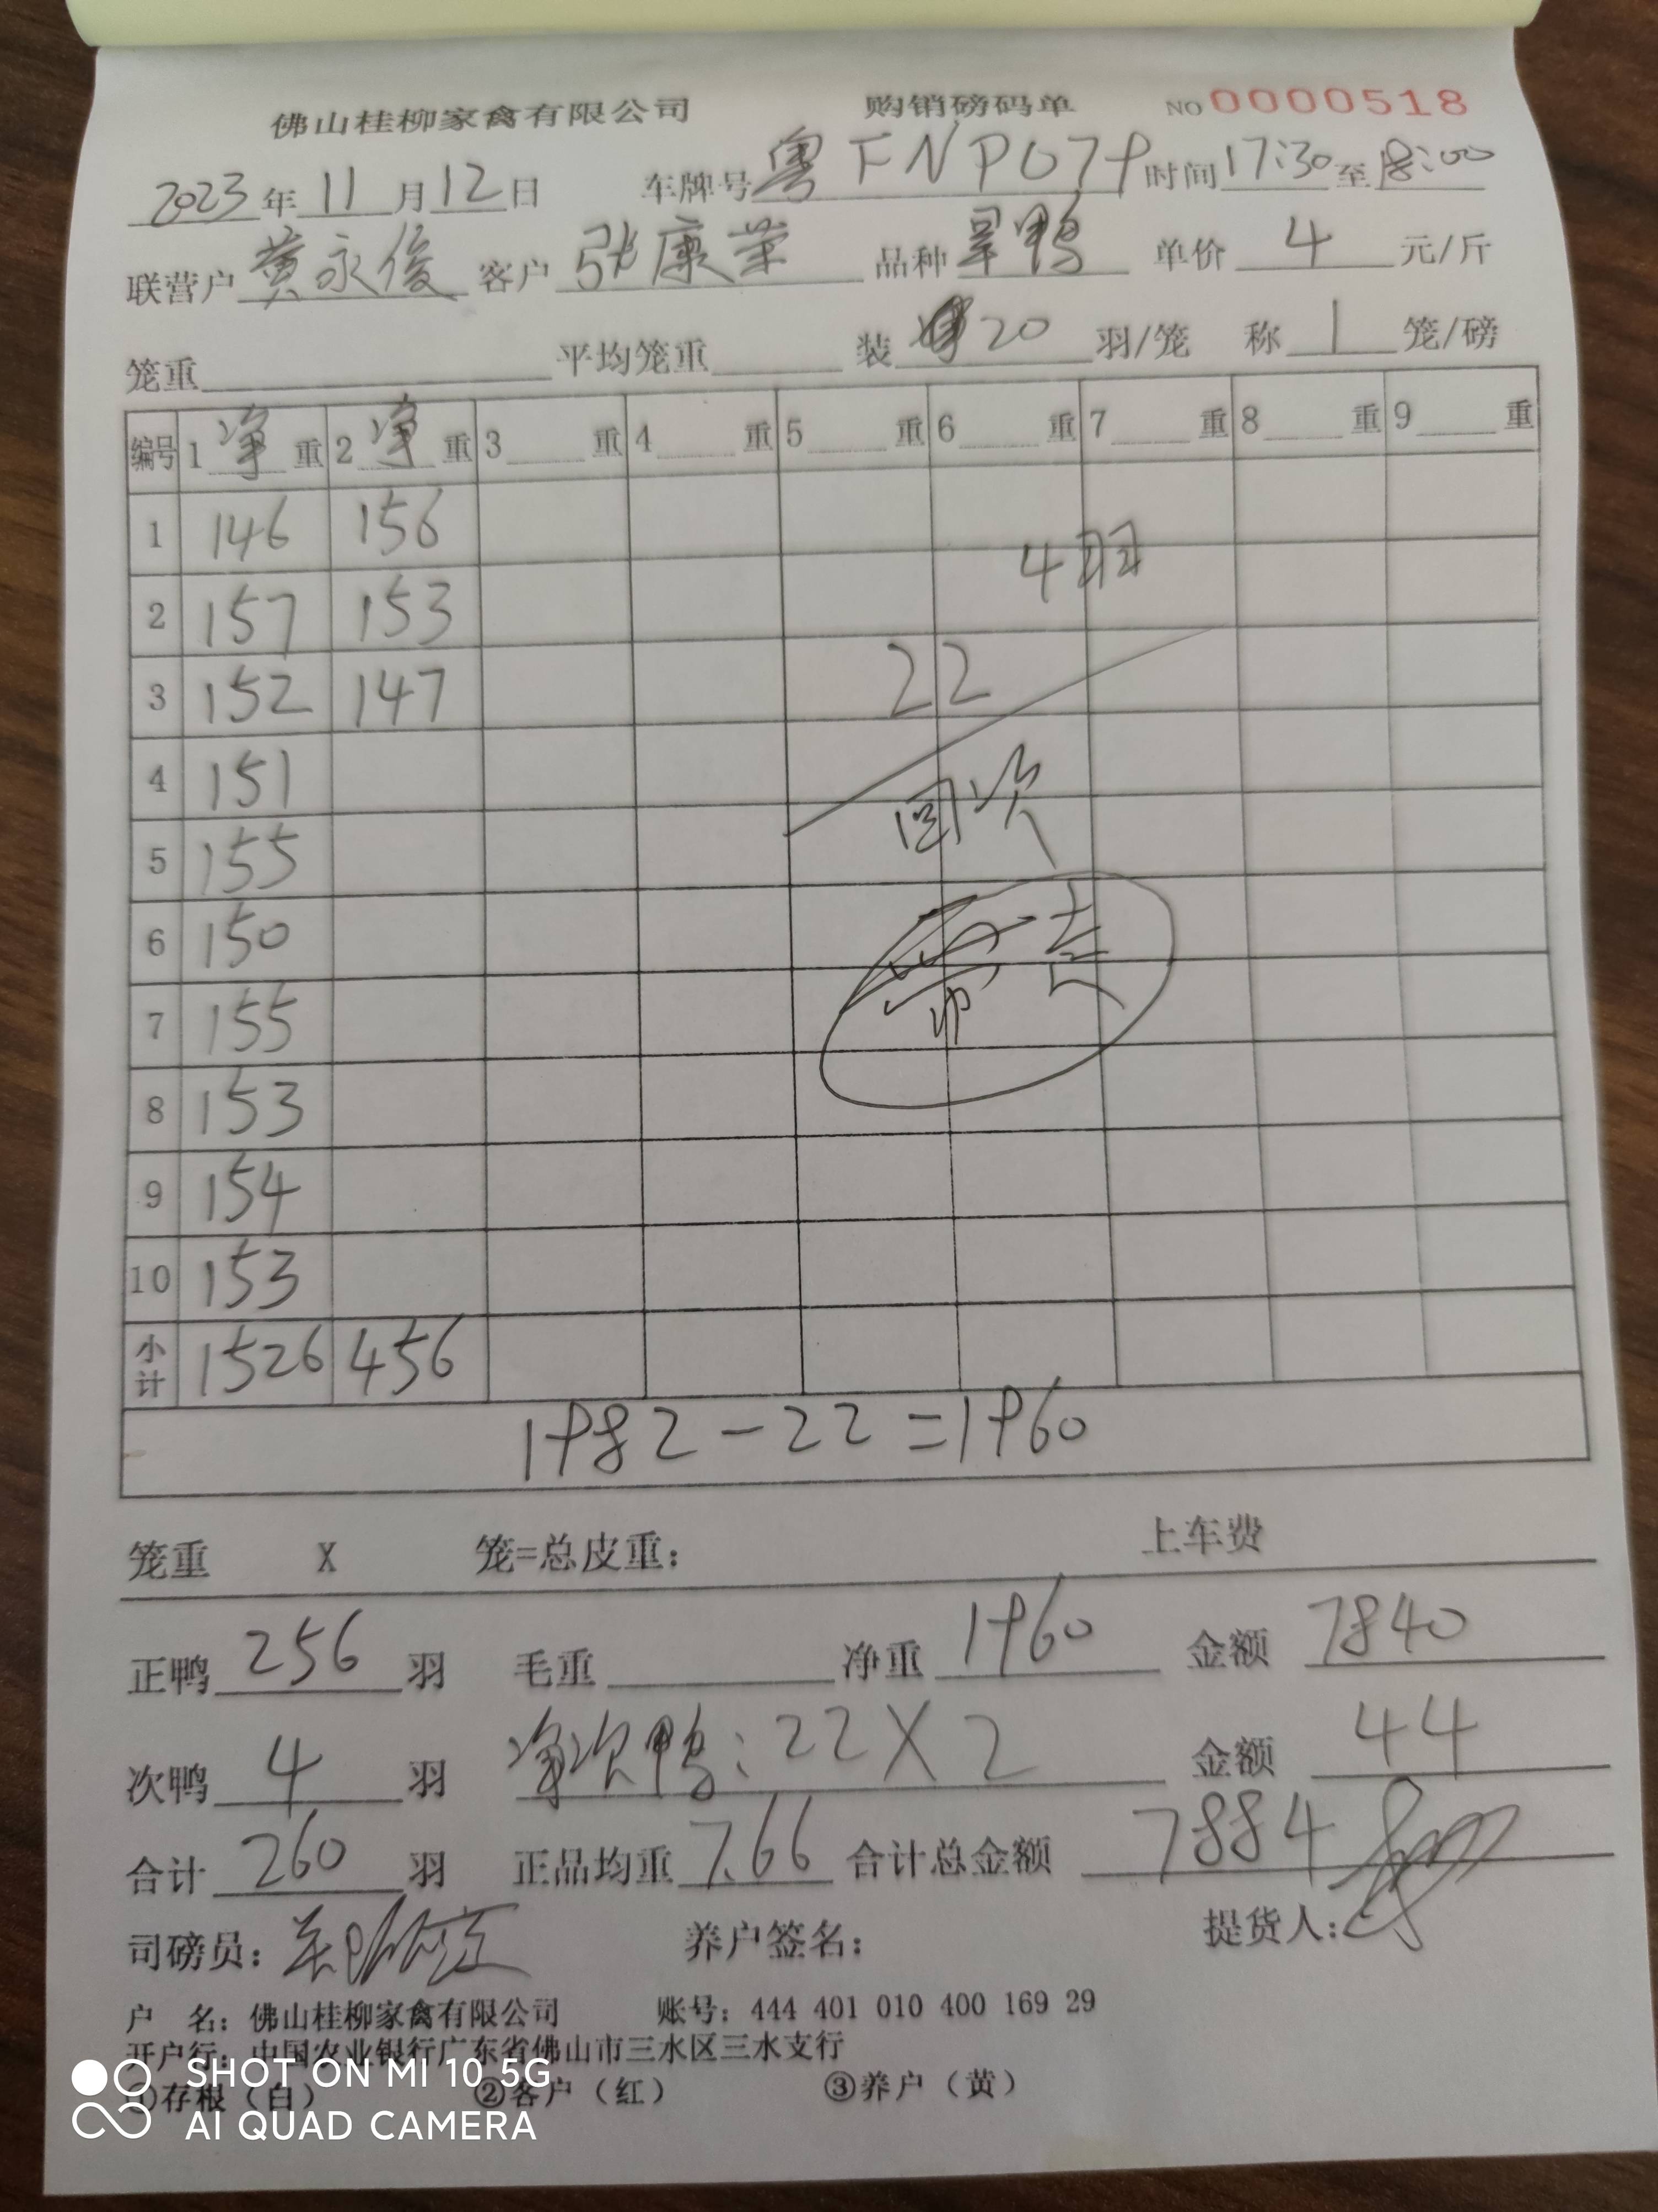 佛山桂柳家禽有限公司 购销磅码单 NO 0000518
2023年11月12日 车牌号粤FNP079时间17:30至18:00
联营户黄永俊客户张康荣 品种旱鸭 单价4元/斤
笼重 平均笼重 装20羽/笼 称1笼/磅
编号 1净重 2净重 3重 4重 5重 6重 7重 8重 9重
1 146 156
4羽
2 157 153
3 152 147 22
4 151
5 155
6 150
7 155
8 153
9 154
10 153
小计 1526 456
1982-22=1960
笼重 X 笼=总皮重: 上车费
正鸭256羽 毛重 净重1960 金额7840
次鸭4羽 净次鸭:22X2 金额44
合计260羽 正品均重7.66 合计总金额7884
司磅员: 养户签名: 提货人:
户 名: 佛山桂柳家禽有限公司 账号: 444 401 010 400 169 29
开户行: 中国农业银行广东省佛山市三水区三水支行
①存根（白） ②客户（红） ③养户（黄）
SHOT ON MI 10 5G
AI QUAD CAMERA